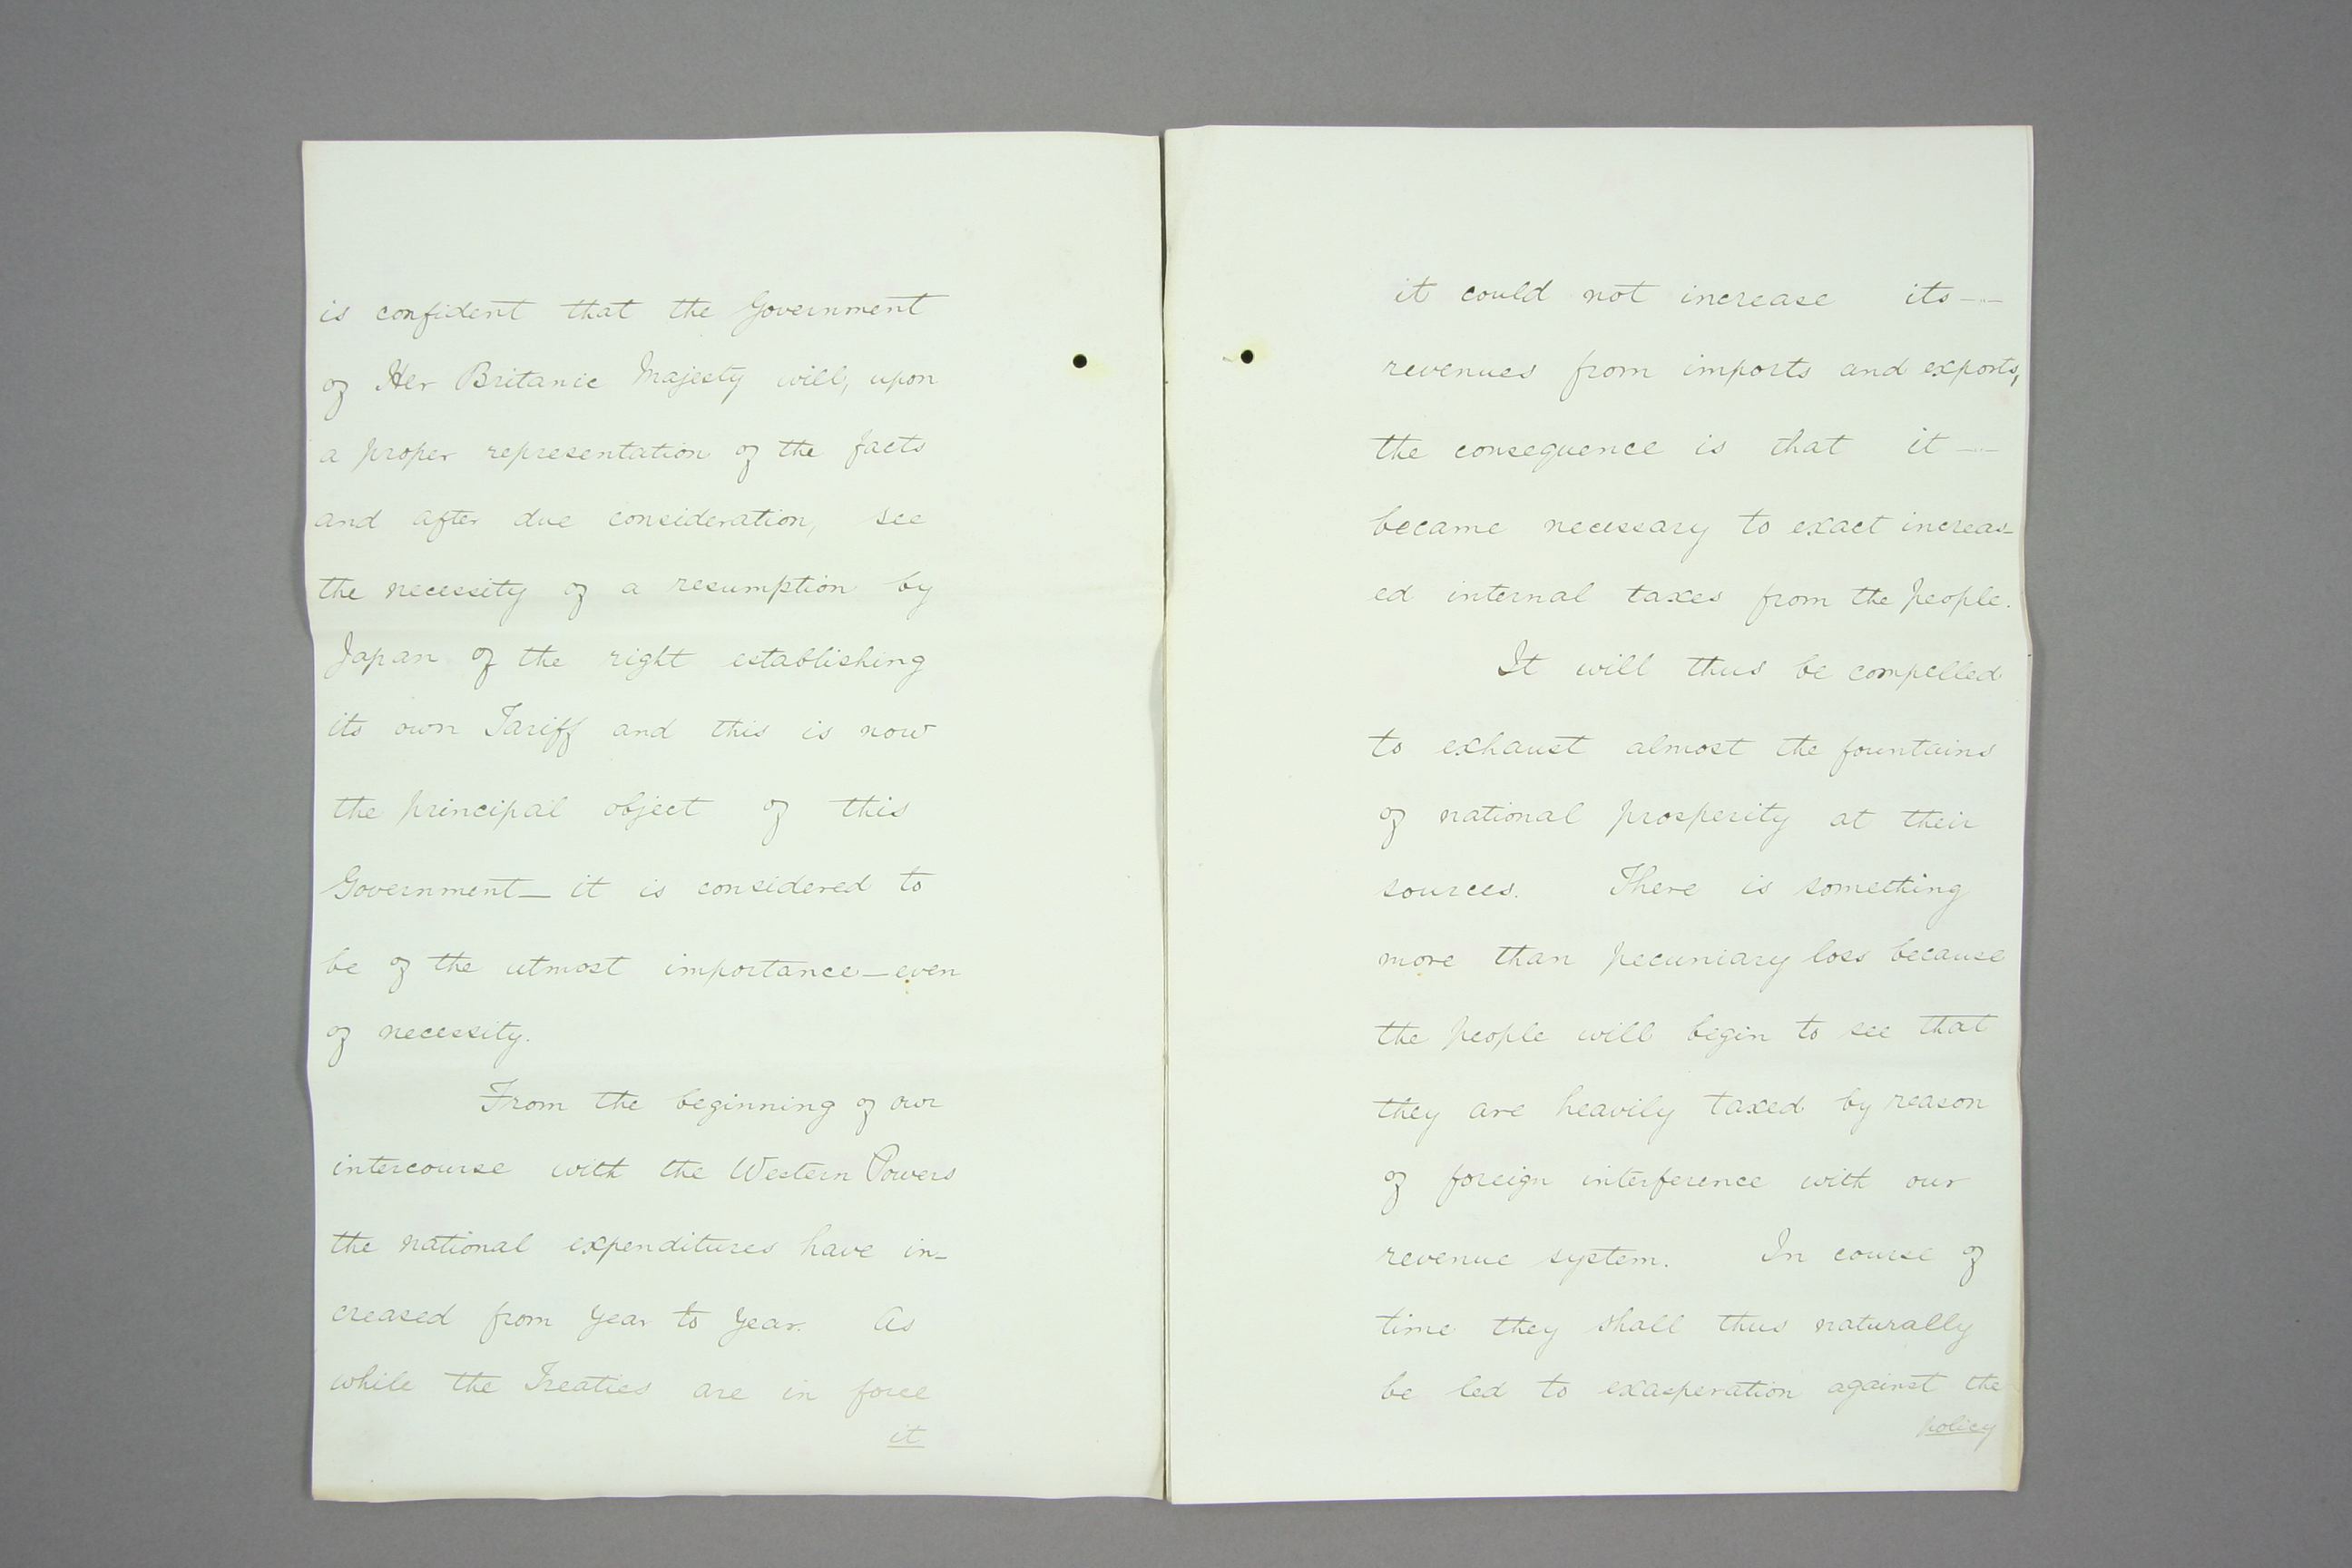 is confident that the Government
of Her Britanic Majesty will, upon
a proper representation of the facts
and after due consideration, see
the necessity of a resumption by
Japan of the right establishing
its own Tariff and this is now
the principal object of this
Government_ it is considered to
be of the utmost importance_even
of necessity.
From the beginning of our
intercourse with the Western Powers
the national expenditures have in-
creased from year to year. As
while the Treaties are in force
it
it could not increase its —
revenues from imports and exports,
the consequence is that it —
became necessary to exact increas-
ed internal taxes from the people.
It will thus be compelled
to exhaust almost the fountains
of national prosperity at their
sources. There is something
more than pecuniary loss because
the people will begin to see that
they are heavily taxed by reason
of foreign interference with our
revenue system. In course of
time they shall thus naturally
be led to exasperation against the
policy